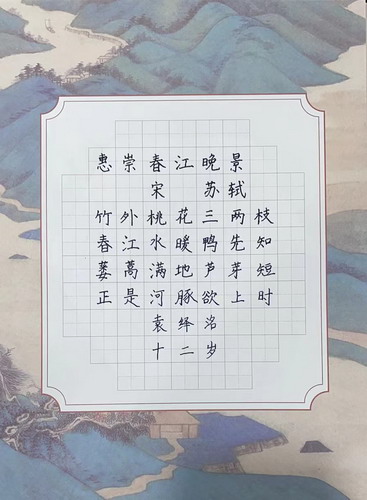 惠崇春江晚景
宋 苏轼
竹外桃花三两枝
春江水暖鸭先知
蒌蒿满地芦芽短
正是河豚欲上时
袁绎洺
十二岁